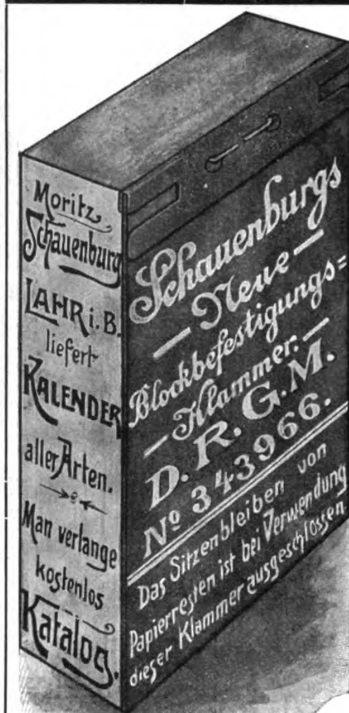 Moritz
Schauenburg
LAHR i. B.
liefert
KALENDER
aller Arten.
Man verlange
kostenlos
Katalog.
Schauenburgs
— Neue —
Blockbefestigungs=
— Klammer. —
D. R. G. M.
No 343966.
Das Sitzenbleiben von
Papierresten ist bei Verwendung
dieser Klammer ausgeschlossen.